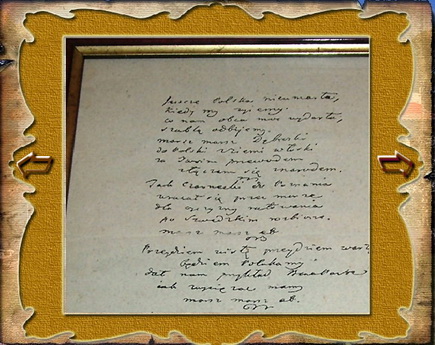 Jeszcze Polska nie umarła,
kiedy my żyjemy.
co nam obca moc wydarła,
szablą odbijemy.
marsz marsz Dąbrski
do Polski z ziemi włoski
za Twoim przewodem
złączem się z narodem.
Jak Czarnecki do Poznania
wracał się przez morze
dla ojczyzny ratowania
po Szwedzkim rozbiorze.
marsz marsz etc.
Przejdziem Wisłę przejdziem Wartę
będziem Polakamy
dał nam przykład Bonaparte
jak zwyciężać mamy
marsz marsz etc.